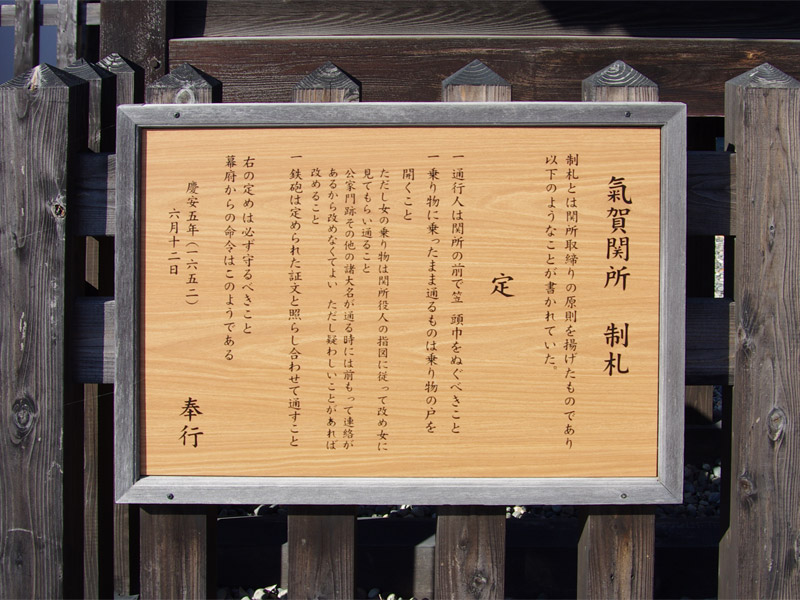 氣賀関所　制札
制札とは関所取締りの原則を揚げたものであり
以下のようなことが書かれていた。
定
一 通行人は関所の前で笠 頭巾をぬぐべきこと
一 乗り物に乗ったまま通るものは乗り物の戸を
開くこと
ただし女の乗り物は関所役人の指図に従って改め女に
見てもらい通ること
公家門跡その他の諸大名が通る時には前もって連絡が
あるから改めなくてよい ただし疑わしいことがあれば
改めること
一 鉄砲は定められた証文と照らし合わせて通すこと
右の定めは必ず守るべきこと
幕府からの命令はこのようである
慶安五年（一六五二）
六月十二日
奉行